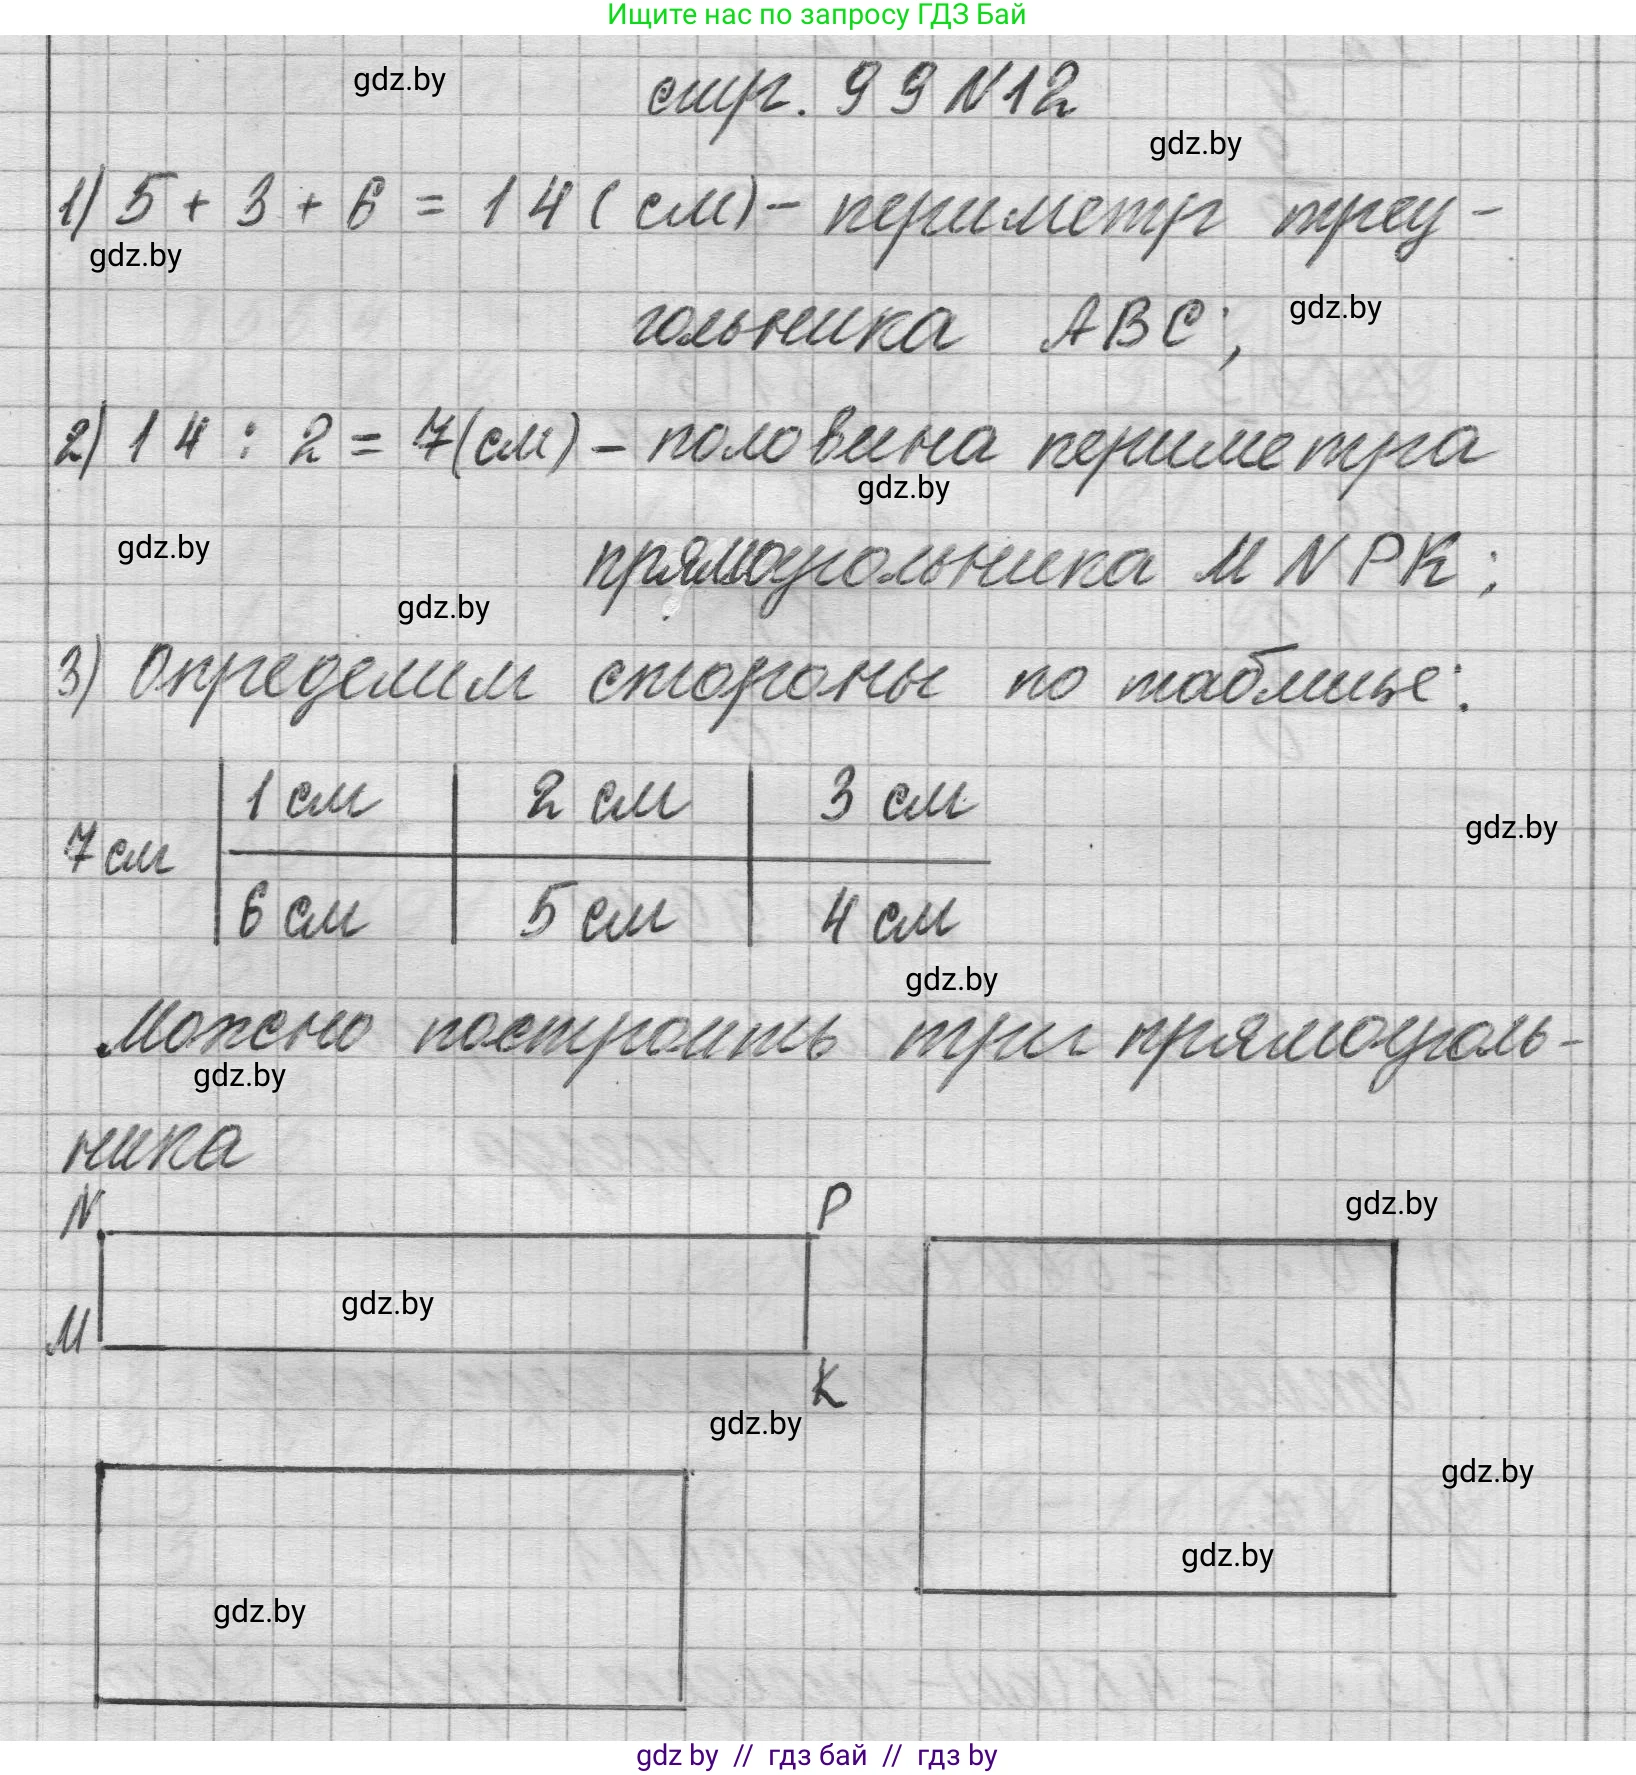 Ищите нас по запросу ГДЗ Бай
gdz.by
стр. 99 N12
gdz.by
1) 5 + 3 + 6 = 14 (см) - периметр треу-
gdz.by
гольника ABC;
gdz.by
2) 14 : 2 = 7 (см) - половина периметра
gdz.by
прямоугольника MNPK;
gdz.by
gdz.by
3) Определим стороны по таблице:
1 см 2 см 3 см
7 см
gdz.by
6 см 5 см 4 см
gdz.by
Можно построить три прямоуголь-
gdz.by
ника
N P
gdz.by
gdz.by
M
K
gdz.by
gdz.by
gdz.by
gdz.by
gdz by // гдз бай // гдз by